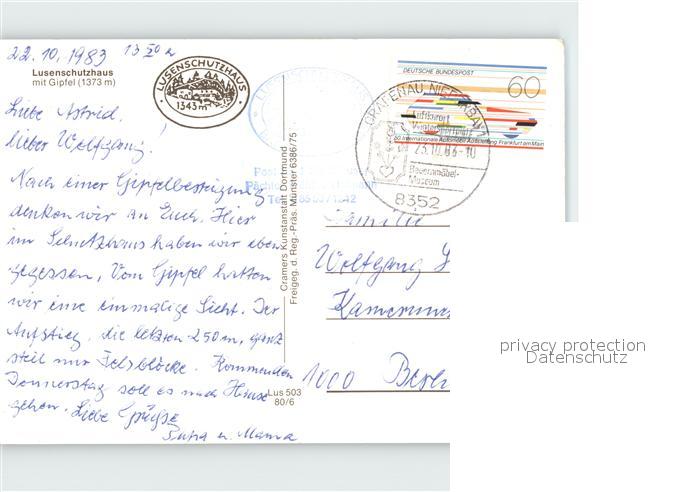 22.10.1983 13 50 h
Lusenschutzhaus
mit Gipfel (1373 m)
LUSENSCHUTZHAUS
1343 m
Liebe Astrid,
lieber Wolfgang!
Nach einer Gipfelbesteigung
denken wir an Euch. Hier
im Schutzhaus haben wir eben
gegessen. Vom Gipfel hatten
wir eine einmalige Sicht. Der
Aufstieg, die letzten 250 m, ganz
steil nur Felsblöcke. Kommenden
Donnerstag soll es nach Hause
gehen. Liebe Grüße
u. Mama
Cramers Kunstanstalt Dortmund
Freigeg. d. Reg.-Präs. Münster 6386/75
Lus 503
80/6
DEUTSCHE BUNDESPOST
60
50 Internationale Automobil-Ausstellung Frankfurt am Main
GRAFENAU, NIEDERBAY
Luftkurort
Wintersportplatz
23.10.83-10
Bauernmöbel-
Museum
8352
Familie
Wolfgang
1000 Berl
privacy protection
Datenschutz